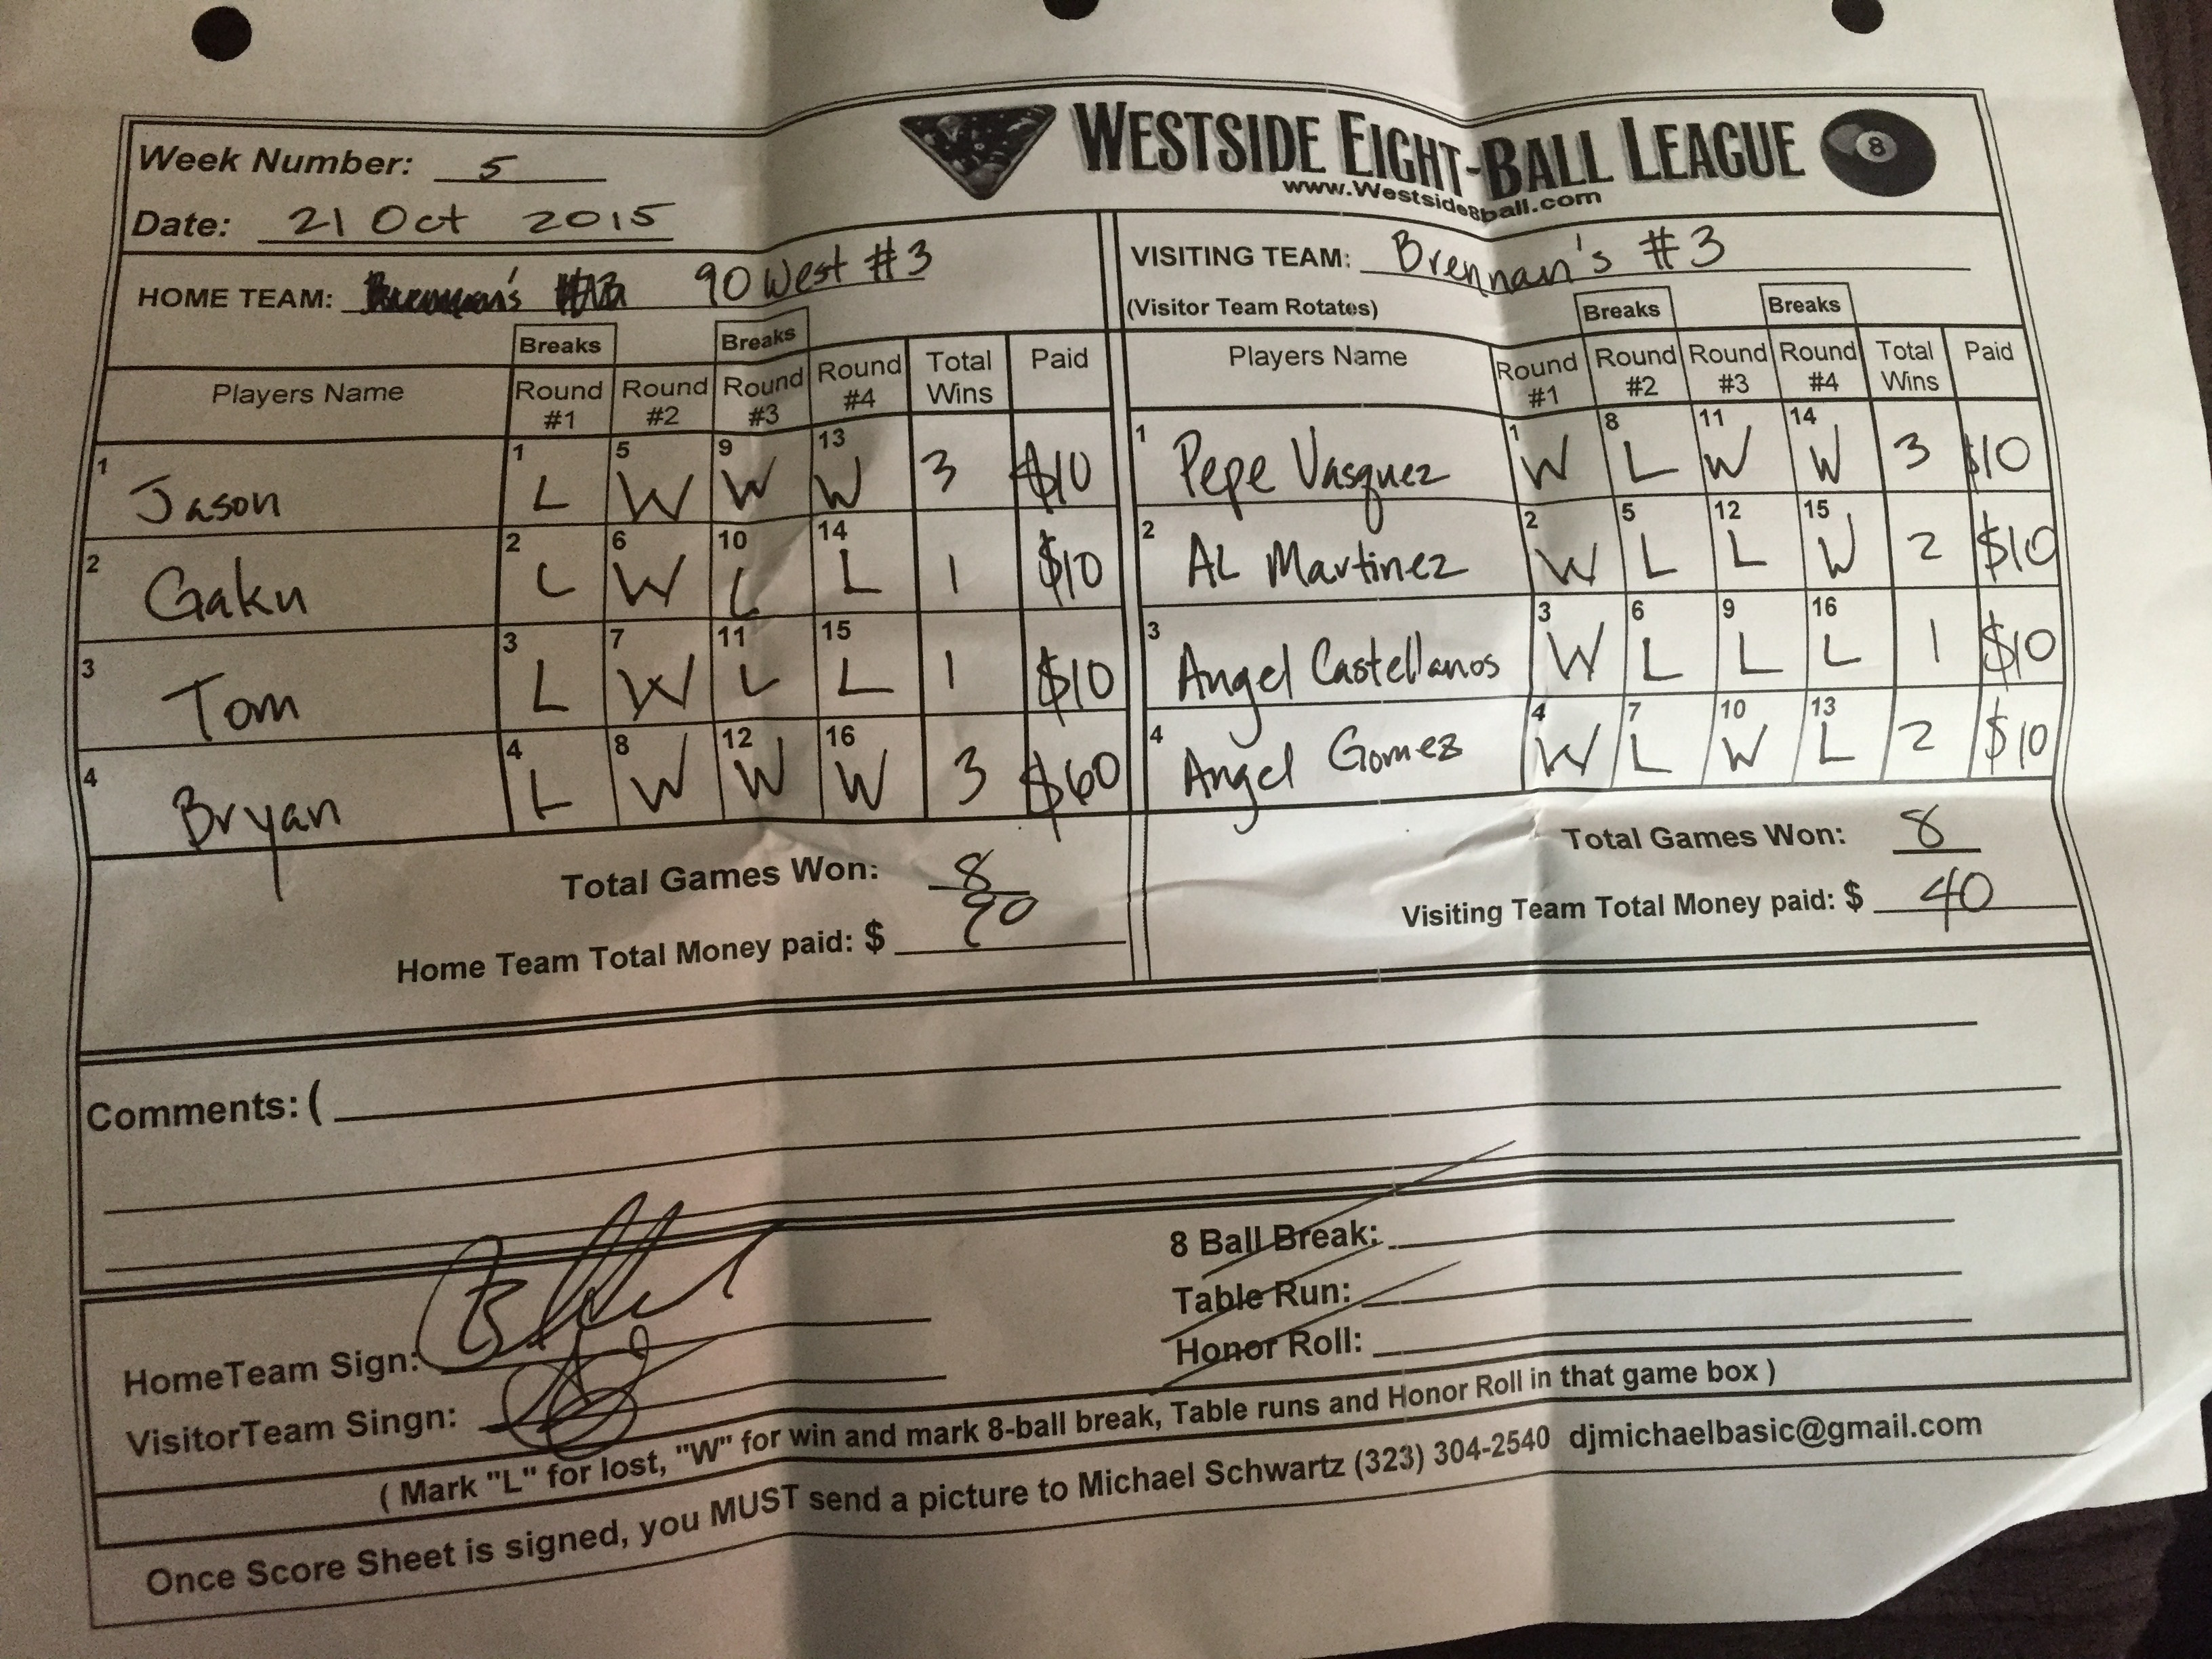 Week Number: 5
WESTSIDE EIGHT-BALL LEAGUE 8
www.Westside8ball.com
Date: 21 Oct 2015
HOME TEAM: 90 West #3
VISITING TEAM: Brennan's #3
(Visitor Team Rotates)
Breaks Breaks Breaks Breaks
Players Name Round #1 Round #2 Round #3 Round #4 Total Wins Paid
1 Jason 1 L 5 W 9 W 13 W 3 $10
2 Gaku 2 L 6 W 10 L 14 L 1 $10
3 Tom 3 L 7 W 11 L 15 L 1 $10
4 Bryan 4 L 8 W 12 W 16 W 3 $60
Total Games Won: 8
Home Team Total Money paid: $ 90
Players Name Round #1 Round #2 Round #3 Round #4 Total Wins Paid
1 Pepe Vasquez 1 W 8 L 11 W 14 W 3 $10
2 AL Martinez 2 W 5 L 12 L 15 W 2 $10
3 Angel Castellanos 3 W 6 L 9 L 16 L 1 $10
4 Angel Gomez 4 W 7 L 10 W 13 L 2 $10
Total Games Won: 8
Visiting Team Total Money paid: $ 40
Comments: (
8 Ball Break:
Table Run:
Honor Roll:
HomeTeam Sign:
VisitorTeam Singn:
( Mark "L" for lost, "W" for win and mark 8-ball break, Table runs and Honor Roll in that game box )
Once Score Sheet is signed, you MUST send a picture to Michael Schwartz (323) 304-2540 djmichaelbasic@gmail.com